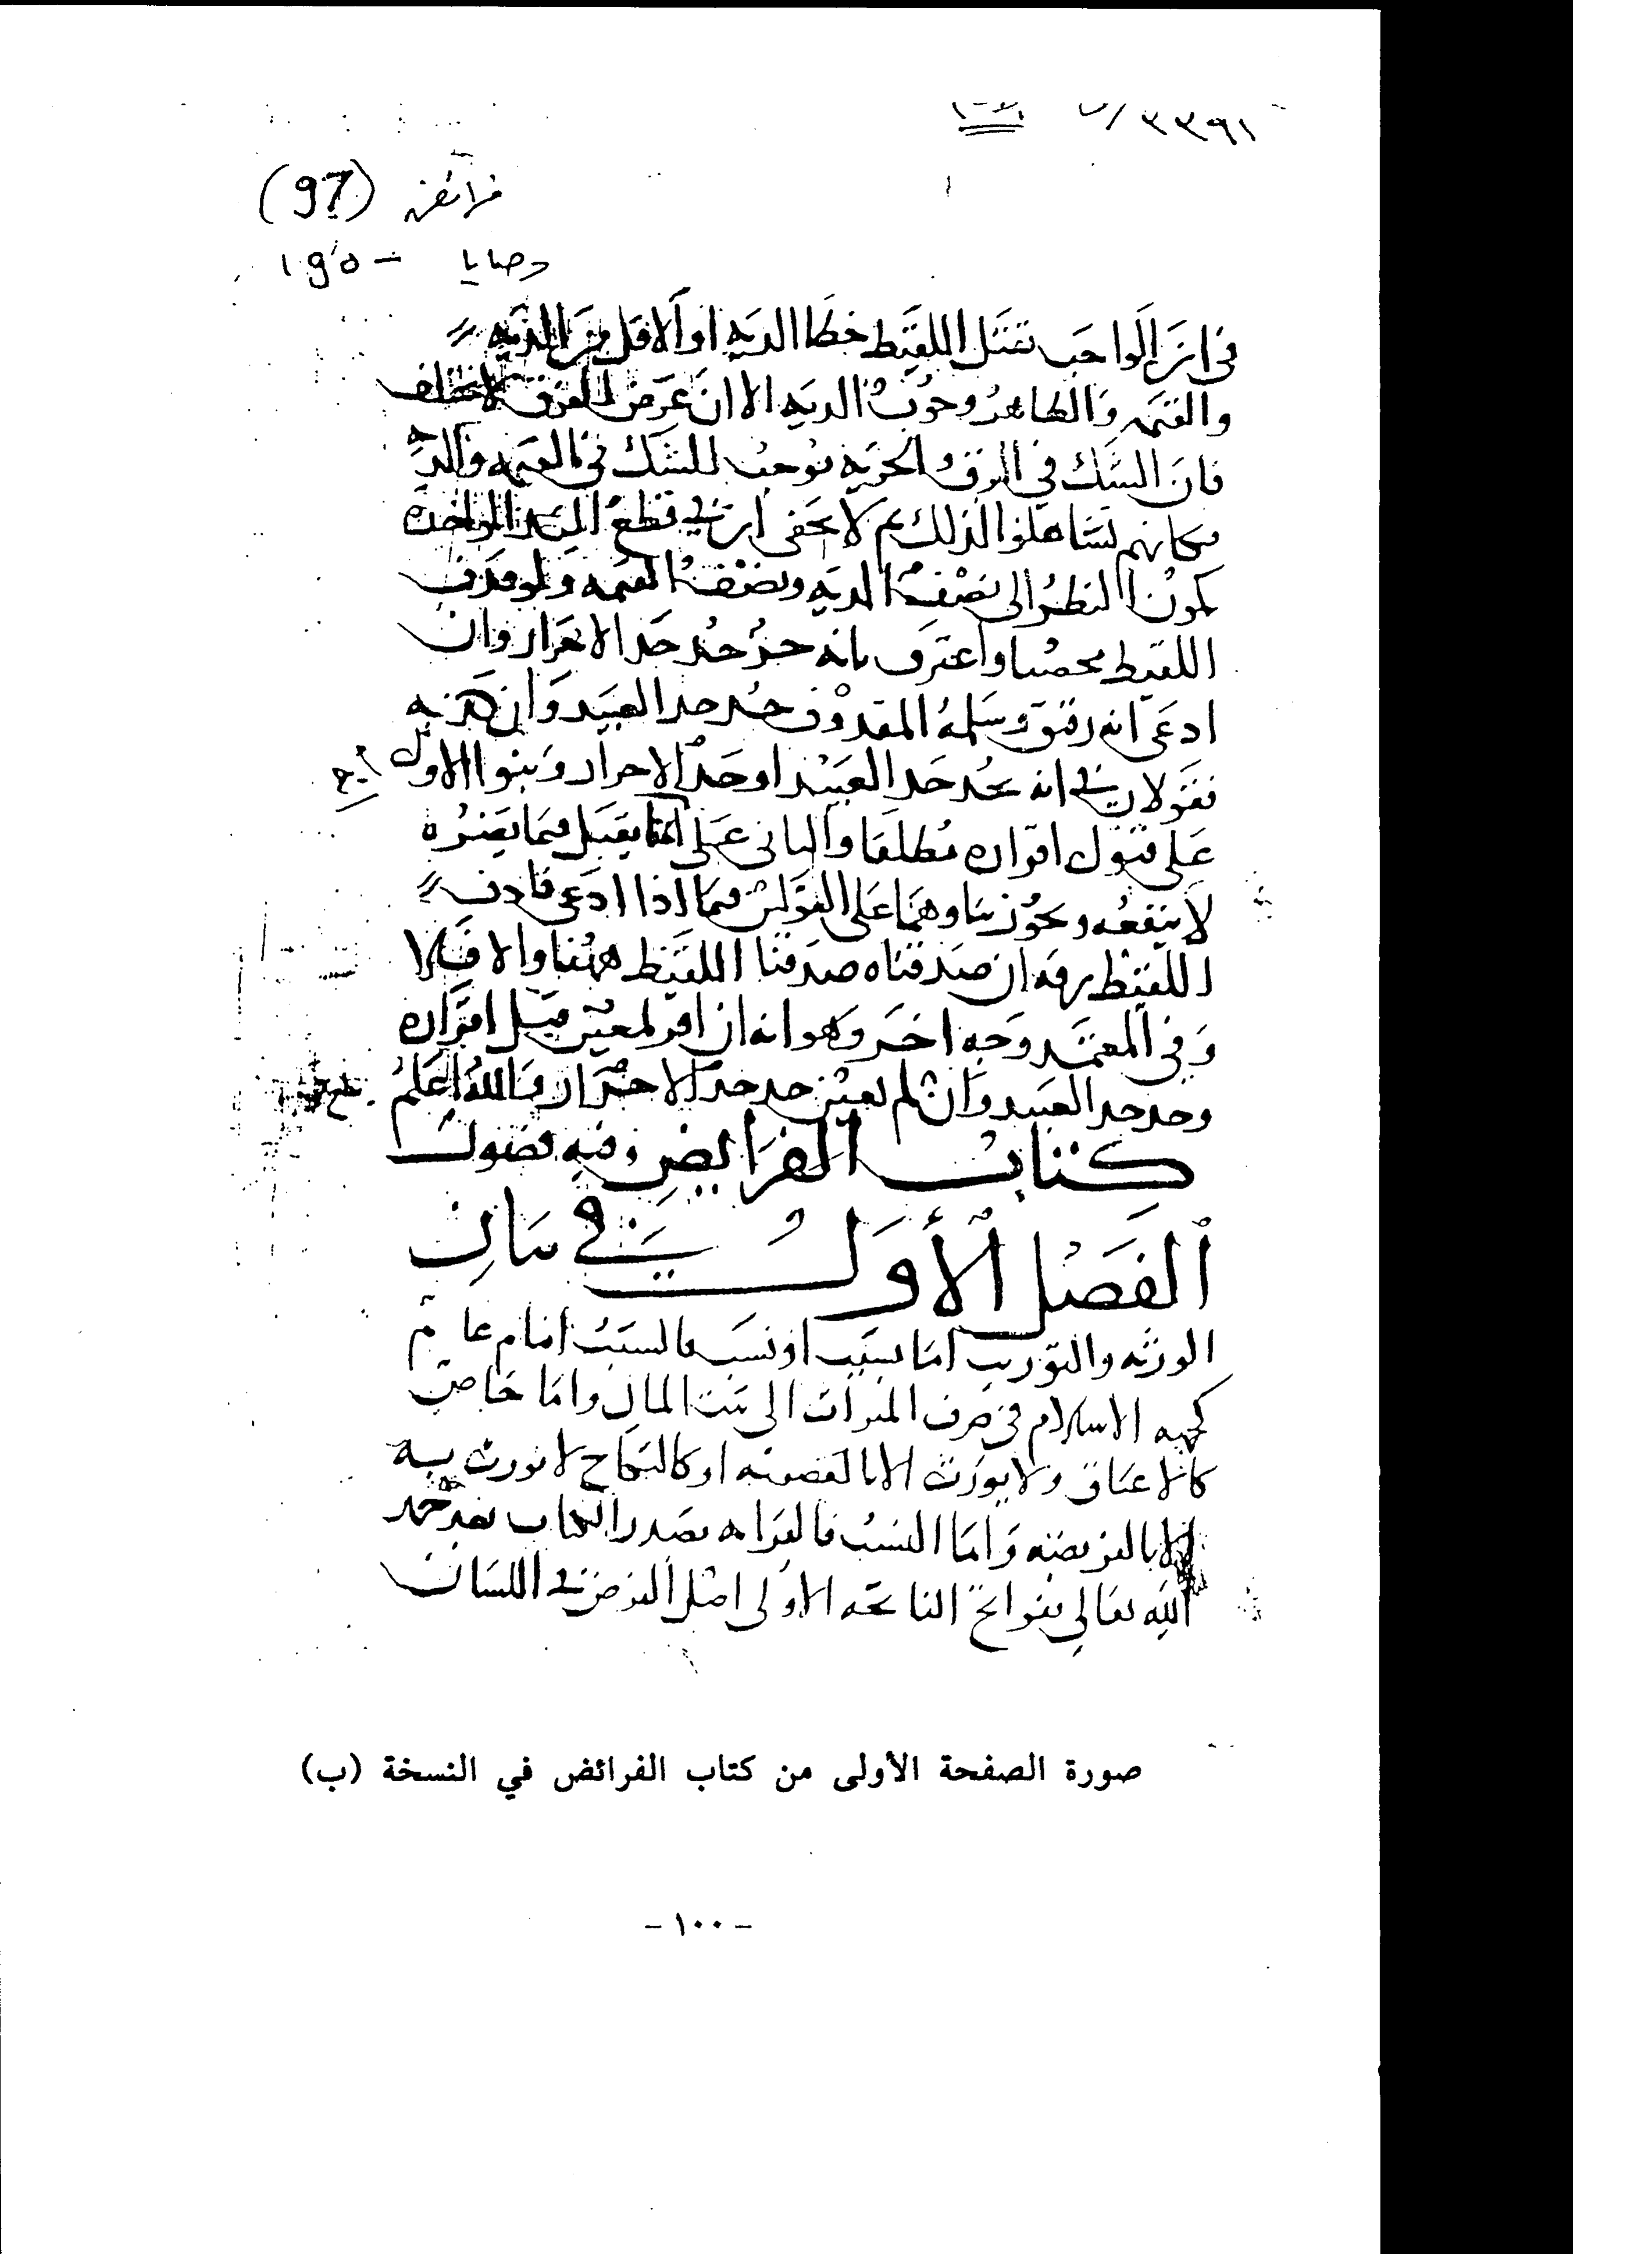 ٣٣٩١
فرائض (97)
وصايا - ١٩٥
في ان الواجب تقتل اللقيط خطا الدية او الاقل من الدية
والقيمة والظاهر وجوب الدية الا ان غرض
فان الشك في الرق والحرية يوجب الشك في القيمة والدية
فكانهم تساهلوا لذلك ثم لا يخفى ان في قطع اليد الواحدة
يكون النظر الى نصف الدية ونصف القيمة ولو قذف
اللقيط محصنا واعترف بانه حر حد حد الاحرار وان
ادعى انه رقيق وسلمه المقذوف حد حد العبيد وان كذبه
فقولان في انه يحد حد العبيد او حد الاحرار وبنوا الاول
على قبول اقراره مطلقا والثاني على انما يقبل فيما يضره
لا ينفعه ويجوز بناوهما على القولين فيما اذا ادعى قاذف
اللقيط رقه ان صدقناه صدقنا اللقيط ههنا والا فلا
وفي المعتمد وجه اخر وهو انه ان اقر لمعين قبل اقراره
وحد حد العبيد وان لم يعين حد حد الاحرار والله اعلم
كتاب الفرايض وفيه فصول
الفصل الأول في بيان
الورثة والتوريث اما بسبب او نسب فالسبب اما عام
كجهة الاسلام في صرف الميراث الى بيت المال واما خاص
كالاعتاق ولا يورث الا بالعصوبة او كالنكاح لا يورث به
الا بالفريضة واما النسب فالقرابة نصدر الكتاب بعد حمد
الله تعالى بفواتح الفاتحة الاولى اصل الفرض في اللسان
صورة الصفحة الأولى من كتاب الفرائض في النسخة (ب)
- ١٠٠ -